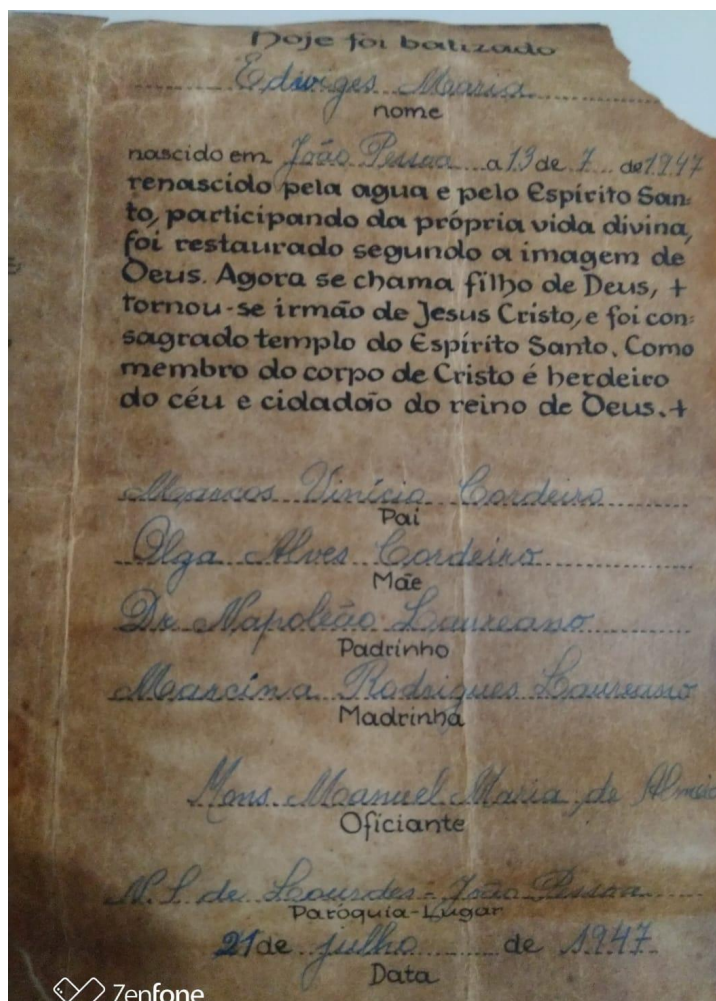 Hoje foi batizado
Edwiges Maria
nome
nascido em João Pessoa a 13 de 7 de 1947
renascido pela agua e pelo Espírito San-
to, participando da própria vida divina,
foi restaurado segundo a imagem de
Deus. Agora se chama filho de Deus, +
tornou-se irmão de Jesus Cristo, e foi con-
sagrado templo do Espírito Santo. Como
membro do corpo de Cristo é herdeiro
do céu e cidadão do reino de Deus. +
Marcos Vinício Cordeiro
Pai
Olga Alves Cordeiro
Mãe
Dr Napoleão Laureano
Padrinho
Marcina Rodrigues Laureano
Madrinha
Mons. Manuel Maria de Almeid
Oficiante
N. S. de Lourdes - João Pessoa
Paróquia-Lugar
21 de julho de 1947
Data
Zenfone